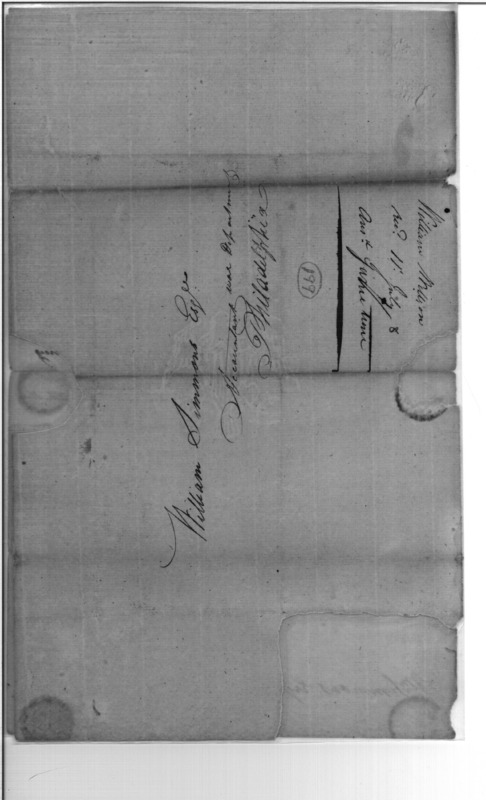 William Simmons Esqr
Accountant war Department
Philadelphia
William
recd. 11th July 8
Ansd. same time
899